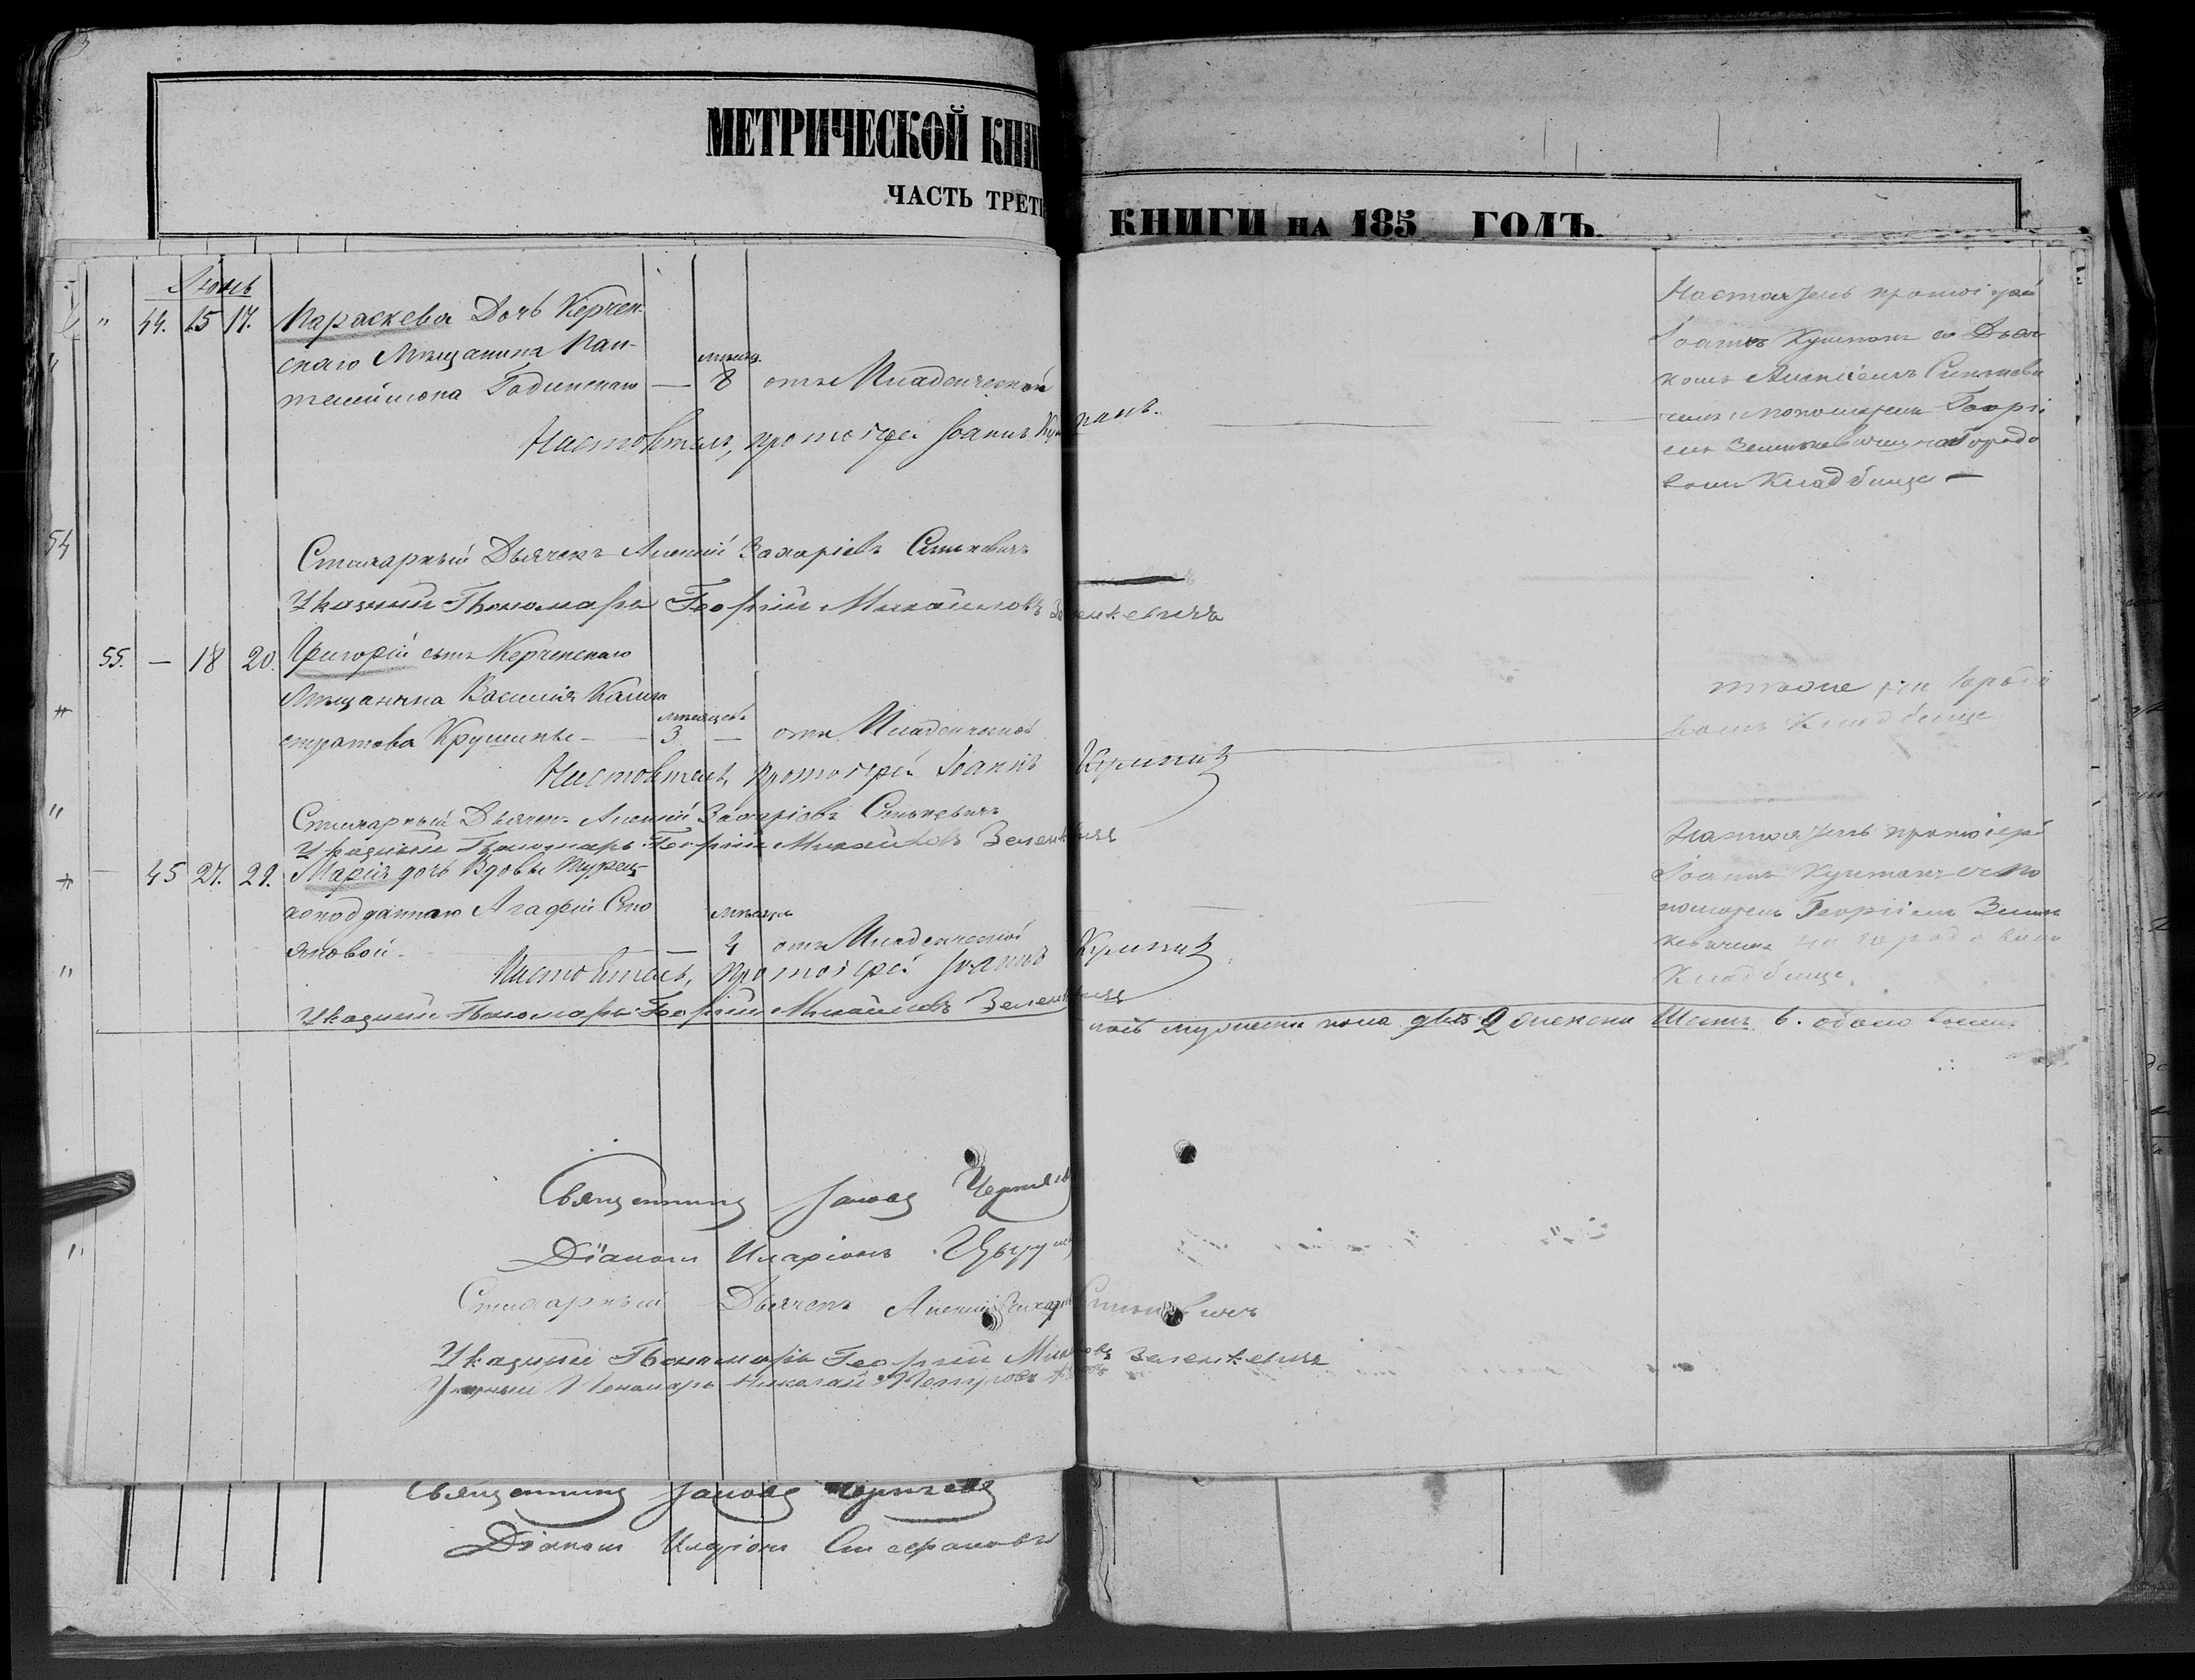 МЕТРИЧЕСКОЙ КНИ
ЧАСТЬ ТРЕТ
КНИГИ НА 185 ГОДЪ.
Июнь
" 44. 15 17. Параскева Дочь Керчен-
скаго Мѣщанина Пан-
телеймона Годинскаго — 8 мѣсяц. отъ Младенческой
Настоятель, протоіерей Іоаннъ
Настоятель протоіерей
Іоаннъ Кушманъ съ Дьяч-
комъ Алексіемъ Синькеви-
чемъ и Пономаремъ Георгі
емъ Зенькевичемъ на Городо
вомъ Кладбище —
54
Стихарный Дьячекъ Алексій Захаріевъ Синькевичъ
Указный Пономарь Георгій Михайловъ Зенькевичъ
55. — 18 20. Григорій сынъ Керченскаго
Мѣщанина Василія Кали
стратова Крушины — 3 мѣсяцевъ — отъ Младенческой
Настоятель, протоіерей Іоаннъ
тѣже на Горо
вомъ Кладбище
Стихарный Дьячекъ Алексій Захаріевъ Синькевичъ
Указный Пономарь Георгій Михайловъ Зенькевичъ
— 45 27. 29. Марія дочь Вдовы Турец-
коподданаго Агафіи Сто
яновой — 4 мѣсяца отъ Младенческой
Настоятель, протоіерей Іоаннъ
Указный Пономарь Георгій Михайловъ Зенькевичъ
Настоятель протоіерей
Іоаннъ Кушманъ съ По
номаремъ Георгіемъ Зень
кевичемъ на городовомъ
Кладбище.
мужеска пола два 2 женска Шесть 6. обоего восемь
Священникъ Іаковъ
Діаконъ Иларіонъ
Стихарный Дьячекъ Алексій Захар Синькевичъ
Указный Пономарь Георгій Зенькевичъ
Указный Пономарь Николай Петровъ
Священникъ Іаковъ
Діаконъ Стефановъ